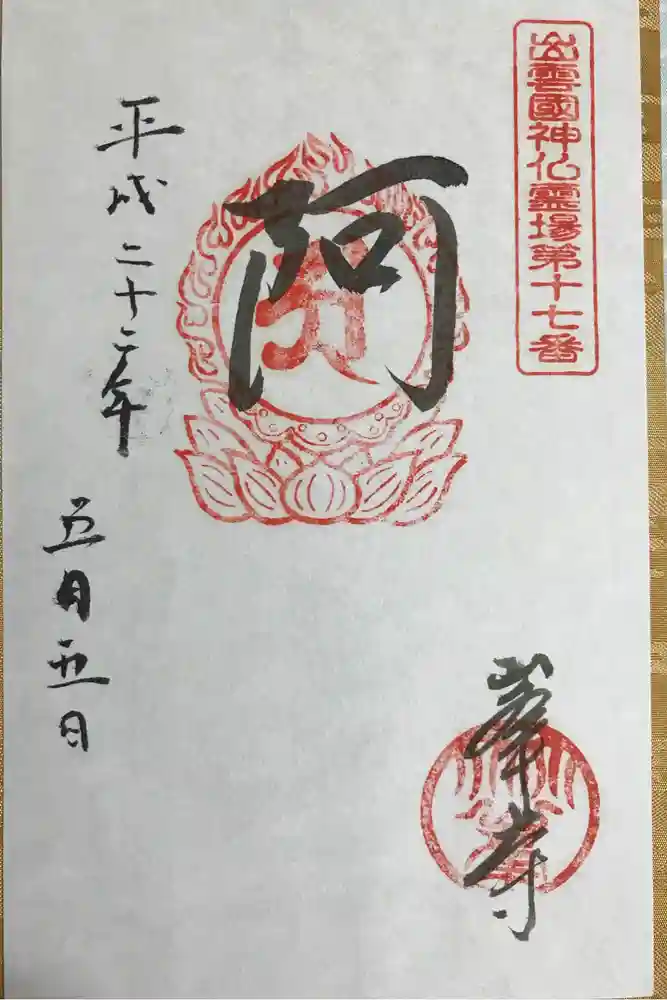 出雲國神仏霊場第十七番
阿
峯寺
平成二十二年
五月五日